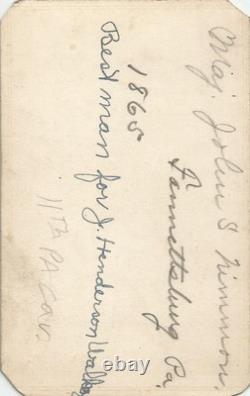 Maj. John S Nimmon.
Fannettsburg Pa.
1865
Best man for J. Henderson Walker
11th PA Cav.
ebay